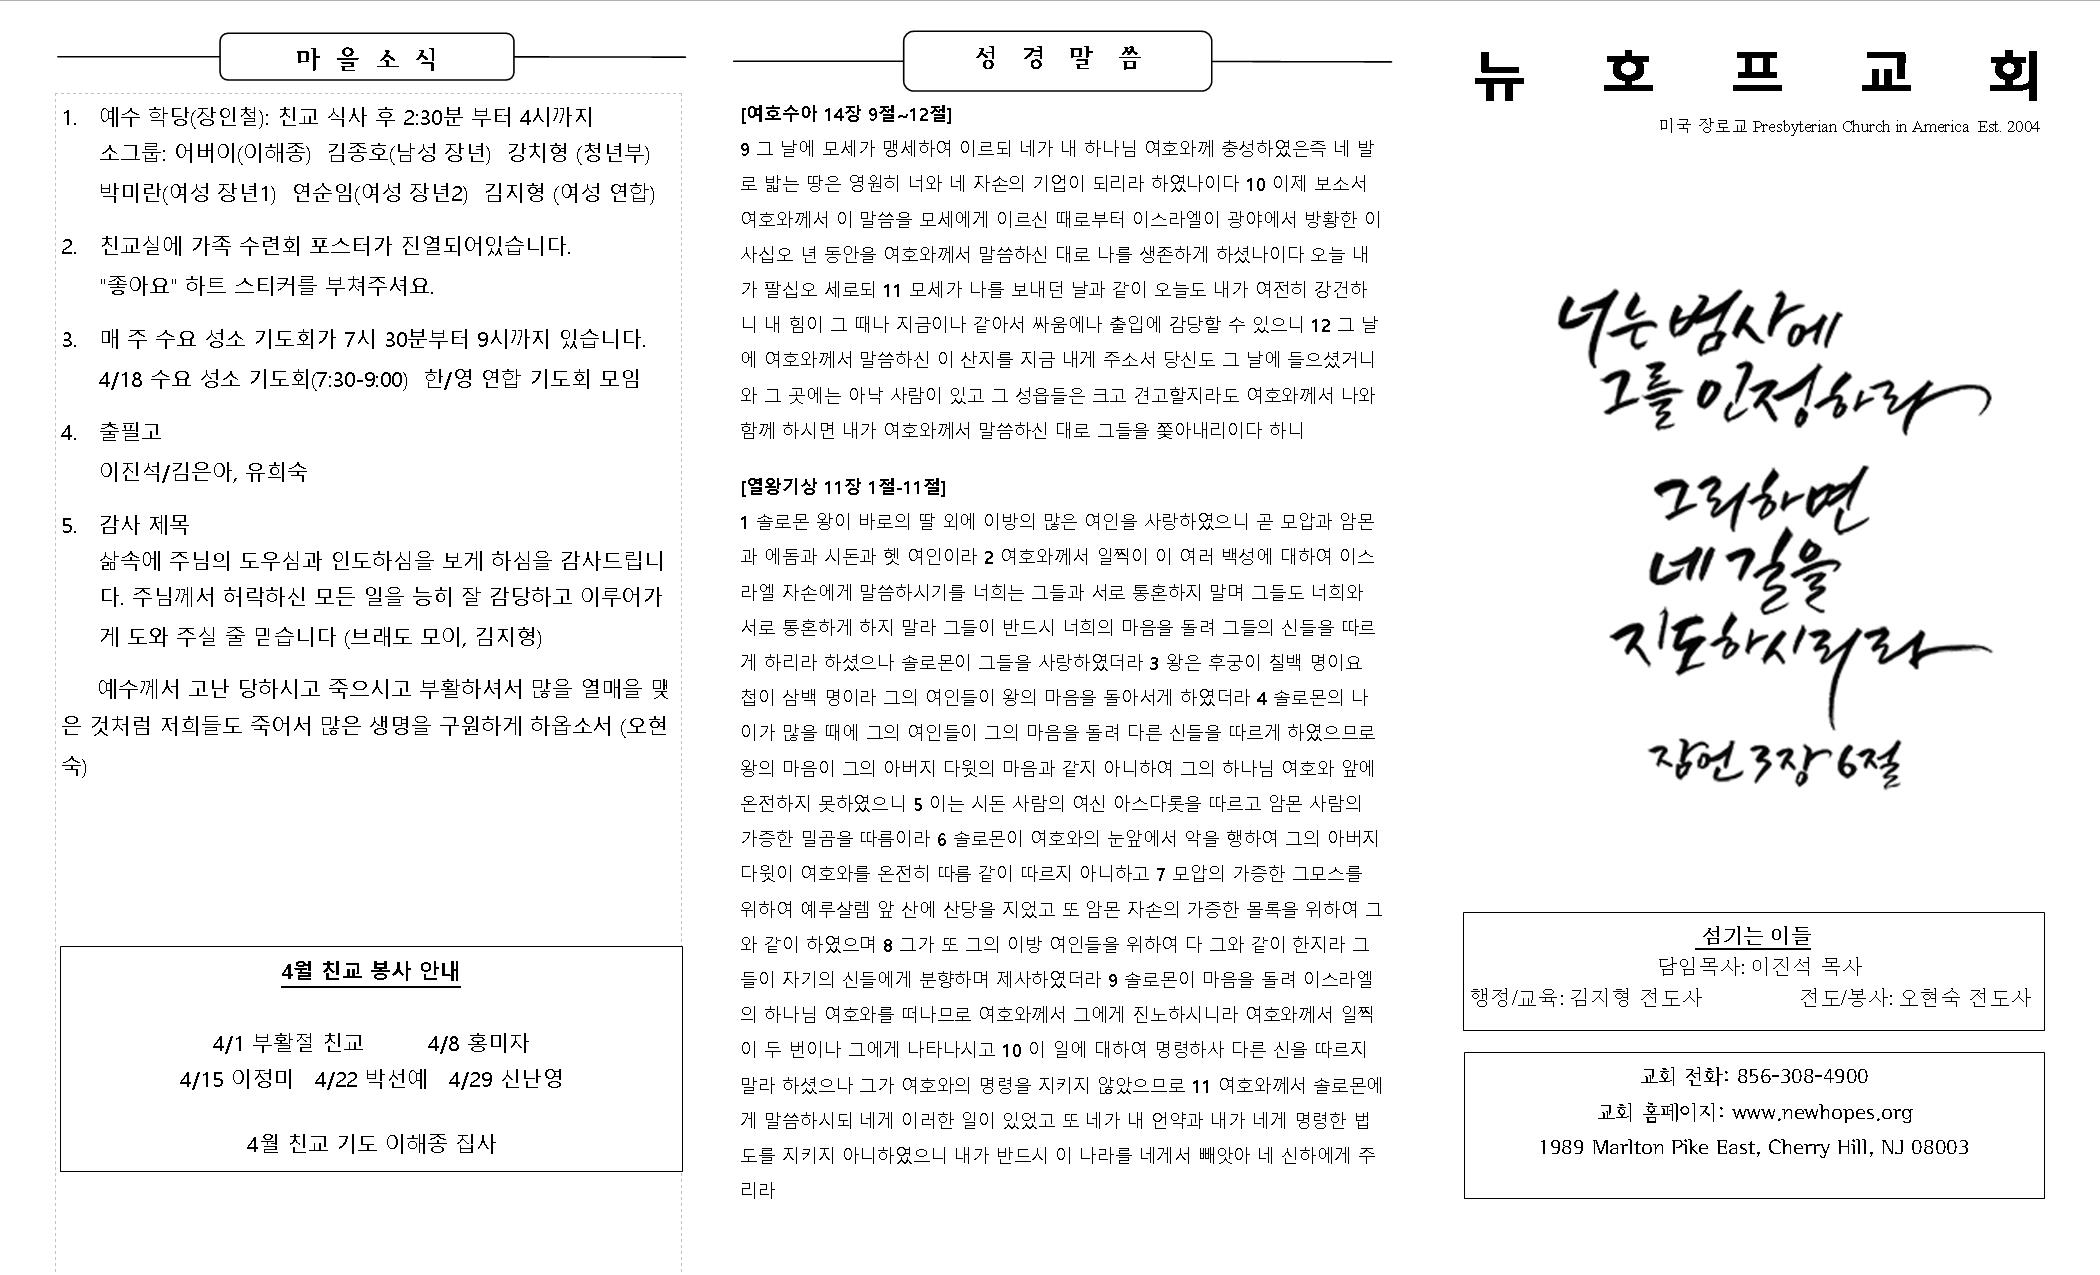 마 을 소 식
1. 예수 학당(장인철): 친교 식사 후 2:30분 부터 4시까지
소그룹: 어버이(이해종) 김종호(남성 장년) 강치형 (청년부)
박미란(여성 장년1) 연순임(여성 장년2) 김지형 (여성 연합)
2. 친교실에 가족 수련회 포스터가 진열되어있습니다.
"좋아요" 하트 스티커를 부쳐주셔요.
3. 매 주 수요 성소 기도회가 7시 30분부터 9시까지 있습니다.
4/18 수요 성소 기도회(7:30-9:00) 한/영 연합 기도회 모임
4. 출필고
이진석/김은아, 유희숙
5. 감사 제목
삶속에 주님의 도우심과 인도하심을 보게 하심을 감사드립니
다. 주님께서 허락하신 모든 일을 능히 잘 감당하고 이루어가
게 도와 주실 줄 믿습니다 (브래도 모이, 김지형)
예수께서 고난 당하시고 죽으시고 부활하셔서 많을 열매을 맺
은 것처럼 저희들도 죽어서 많은 생명을 구원하게 하옵소서 (오현
숙)
4월 친교 봉사 안내
4/1 부활절 친교 4/8 홍미자
4/15 이정미 4/22 박선예 4/29 신난영
4월 친교 기도 이해종 집사
성 경 말 씀
[여호수아 14장 9절~12절]
9 그 날에 모세가 맹세하여 이르되 네가 내 하나님 여호와께 충성하였은즉 네 발
로 밟는 땅은 영원히 너와 네 자손의 기업이 되리라 하였나이다 10 이제 보소서
여호와께서 이 말씀을 모세에게 이르신 때로부터 이스라엘이 광야에서 방황한 이
사십오 년 동안을 여호와께서 말씀하신 대로 나를 생존하게 하셨나이다 오늘 내
가 팔십오 세로되 11 모세가 나를 보내던 날과 같이 오늘도 내가 여전히 강건하
니 내 힘이 그 때나 지금이나 같아서 싸움에나 출입에 감당할 수 있으니 12 그 날
에 여호와께서 말씀하신 이 산지를 지금 내게 주소서 당신도 그 날에 들으셨거니
와 그 곳에는 아낙 사람이 있고 그 성읍들은 크고 견고할지라도 여호와께서 나와
함께 하시면 내가 여호와께서 말씀하신 대로 그들을 쫓아내리이다 하니
[열왕기상 11장 1절-11절]
1 솔로몬 왕이 바로의 딸 외에 이방의 많은 여인을 사랑하였으니 곧 모압과 암몬
과 에돔과 시돈과 헷 여인이라 2 여호와께서 일찍이 이 여러 백성에 대하여 이스
라엘 자손에게 말씀하시기를 너희는 그들과 서로 통혼하지 말며 그들도 너희와
서로 통혼하게 하지 말라 그들이 반드시 너희의 마음을 돌려 그들의 신들을 따르
게 하리라 하셨으나 솔로몬이 그들을 사랑하였더라 3 왕은 후궁이 칠백 명이요
첩이 삼백 명이라 그의 여인들이 왕의 마음을 돌아서게 하였더라 4 솔로몬의 나
이가 많을 때에 그의 여인들이 그의 마음을 돌려 다른 신들을 따르게 하였으므로
왕의 마음이 그의 아버지 다윗의 마음과 같지 아니하여 그의 하나님 여호와 앞에
온전하지 못하였으니 5 이는 시돈 사람의 여신 아스다롯을 따르고 암몬 사람의
가증한 밀곰을 따름이라 6 솔로몬이 여호와의 눈앞에서 악을 행하여 그의 아버지
다윗이 여호와를 온전히 따름 같이 따르지 아니하고 7 모압의 가증한 그모스를
위하여 예루살렘 앞 산에 산당을 지었고 또 암몬 자손의 가증한 몰록을 위하여 그
와 같이 하였으며 8 그가 또 그의 이방 여인들을 위하여 다 그와 같이 한지라 그
들이 자기의 신들에게 분향하며 제사하였더라 9 솔로몬이 마음을 돌려 이스라엘
의 하나님 여호와를 떠나므로 여호와께서 그에게 진노하시니라 여호와께서 일찍
이 두 번이나 그에게 나타나시고 10 이 일에 대하여 명령하사 다른 신을 따르지
말라 하셨으나 그가 여호와의 명령을 지키지 않았으므로 11 여호와께서 솔로몬에
게 말씀하시되 네게 이러한 일이 있었고 또 네가 내 언약과 내가 네게 명령한 법
도를 지키지 아니하였으니 내가 반드시 이 나라를 네게서 빼앗아 네 신하에게 주
리라
뉴 호 프 교 회
미국 장로교 Presbyterian Church in America Est. 2004
너는 범사에
그를 인정하라
그리하면
네 길을
지도하시리라
잠언 3장 6절
섬기는 이들
담임목사: 이진석 목사
행정/교육: 김지형 전도사 전도/봉사: 오현숙 전도사
교회 전화: 856-308-4900
교회 홈페이지: www.newhopes.org
1989 Marlton Pike East, Cherry Hill, NJ 08003